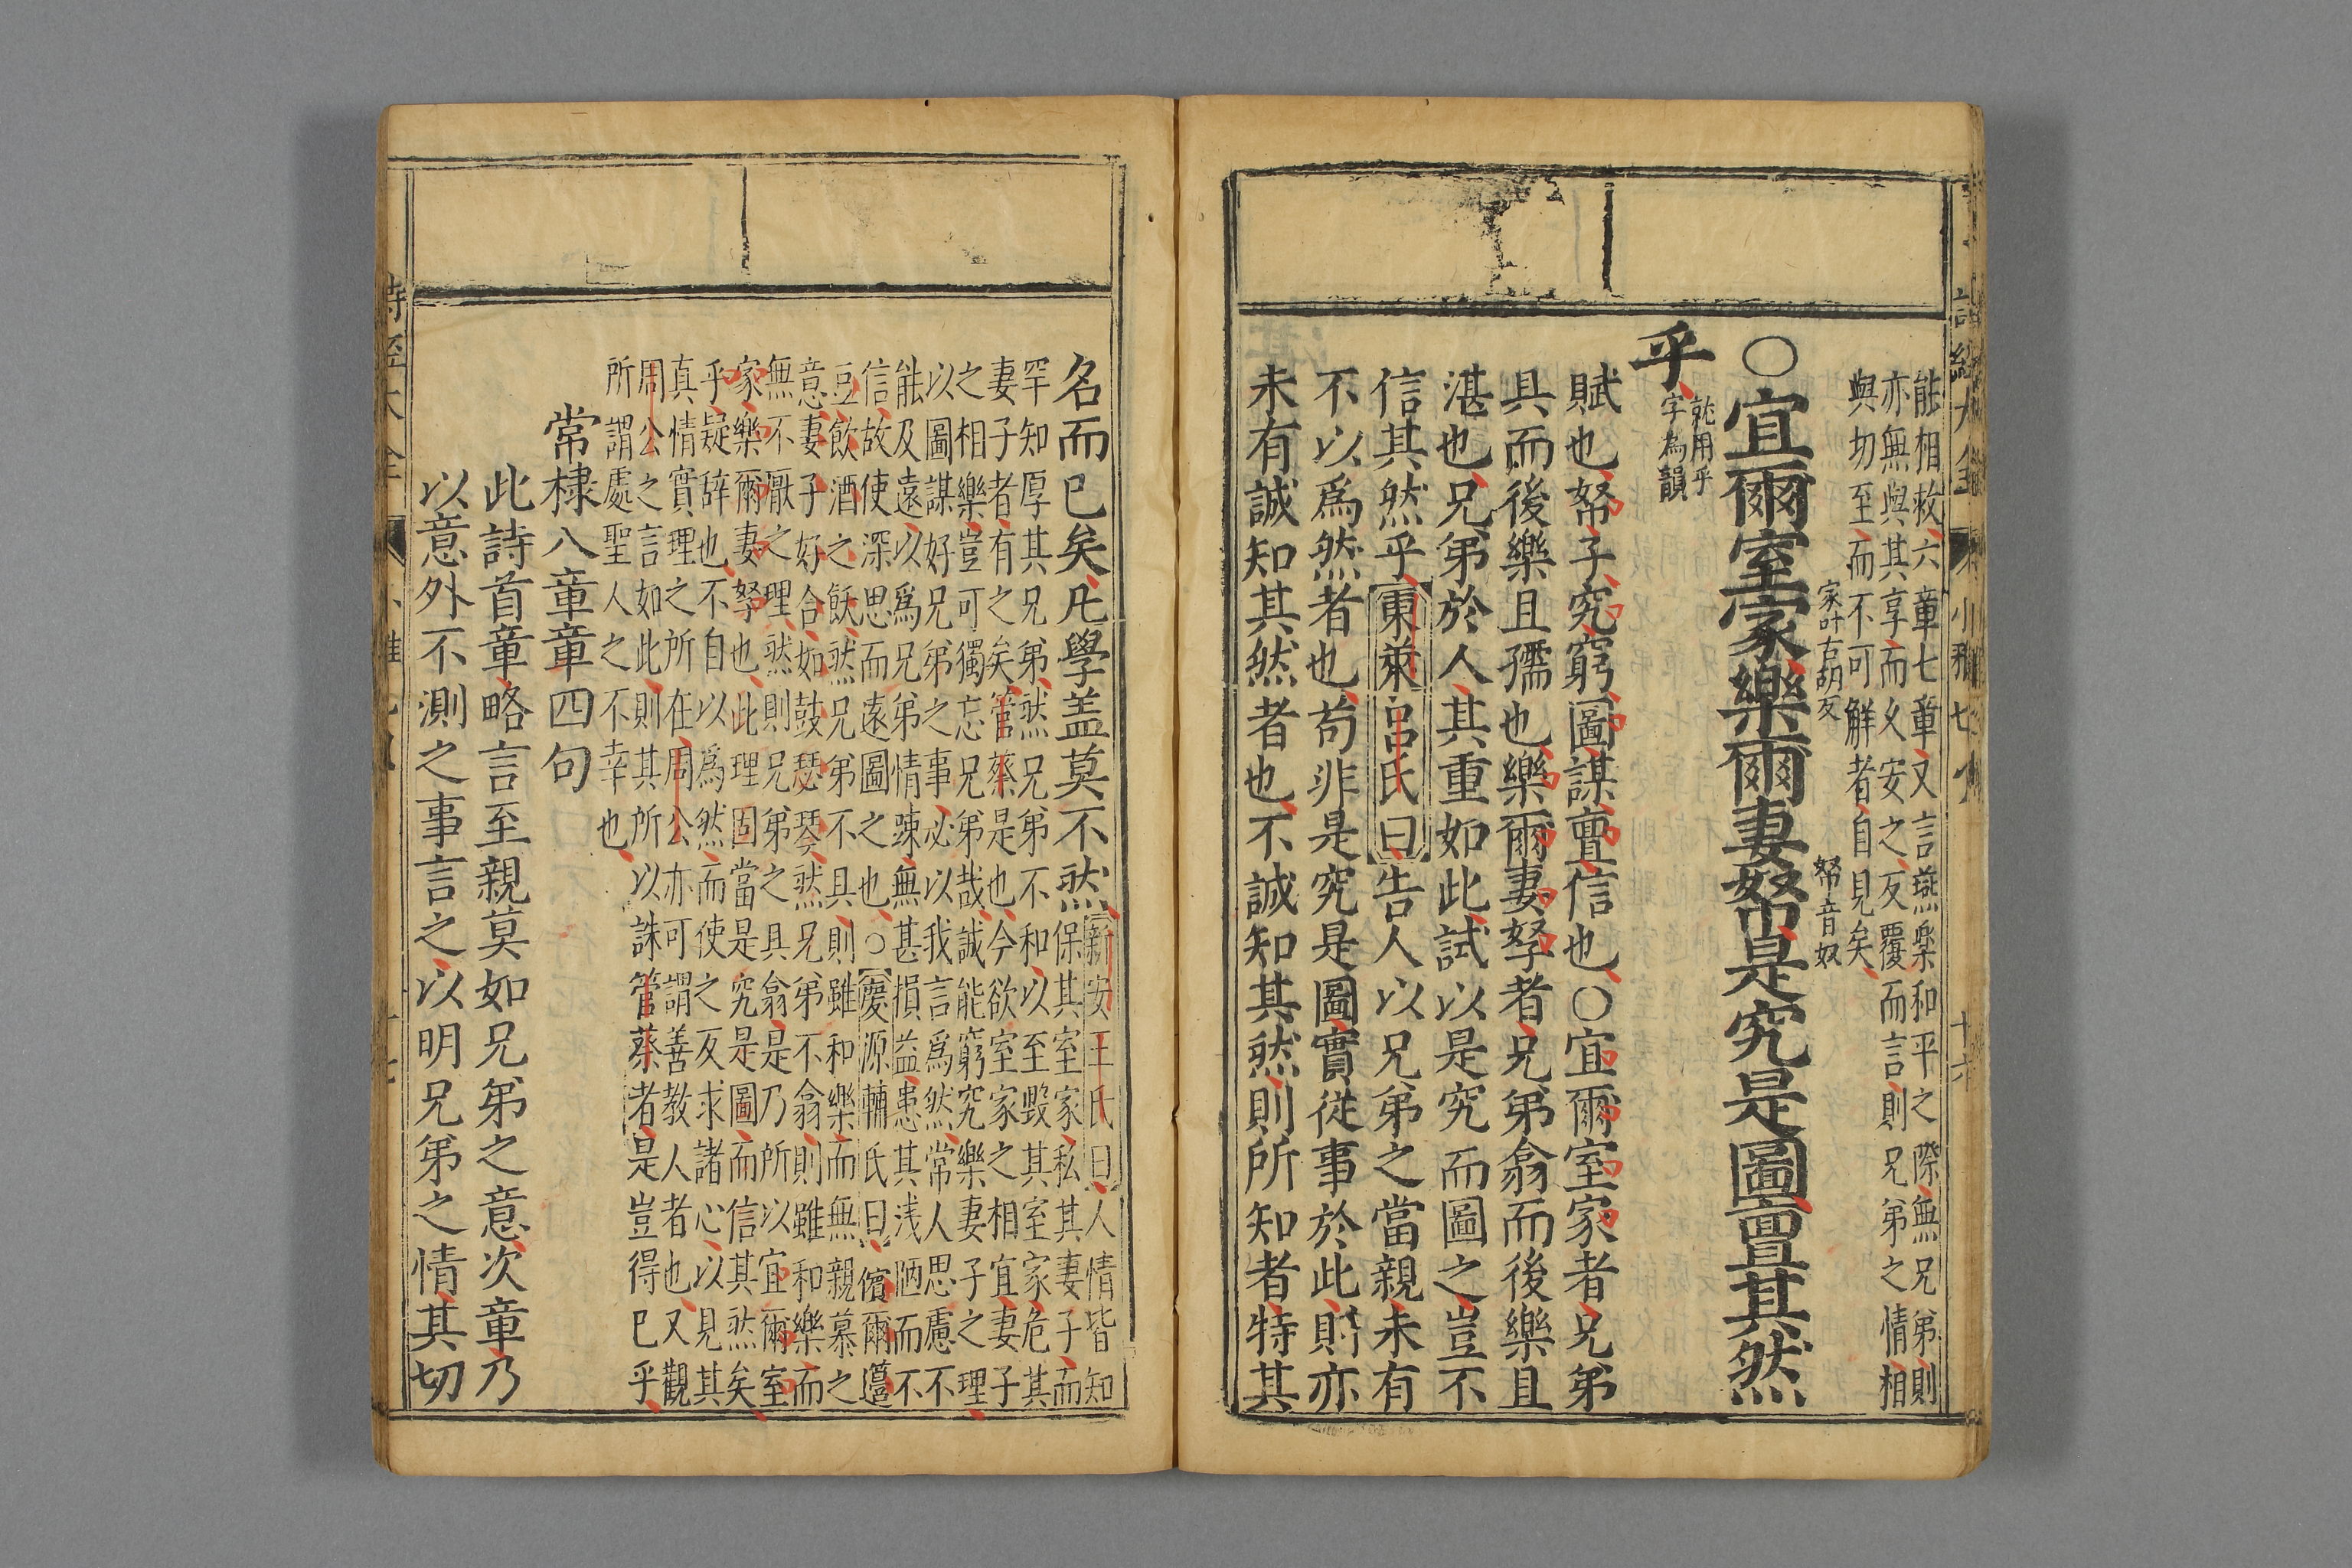 能相救六章七章又言燕樂和平之際無兄弟則
亦無與其享而久安之反覆而言則兄弟之情相
與切至而不可解者自見矣
家叶古胡反
帑音奴
○宜爾室家樂爾妻帑是究是圖亶其然
乎
就用乎
字為韻
賦也帑子究窮圖謀亶信也○宜爾室家者兄弟
具而後樂且孺也樂爾妻孥者兄弟翕而後樂且
湛也兄弟於人其重如此試以是究而圖之豈不
信其然乎東萊呂氏曰告人以兄弟之當親未有
不以爲然者也苟非是究是圖實從事於此則亦
未有誠知其然者也不誠知其然則所知者特其
詩經大全
小雅七
十六
名而已矣凡學盖莫不然
新安王氏曰人情皆知
保其室家私其妻子而
罕知厚其兄弟然兄弟不和以至毀其室家危其
妻子者有之矣管蔡是也今欲室家之相宜妻子
之相樂豈可獨忘兄弟哉誠能窮究樂妻子之理
以圖謀好兄弟之事必以我言爲然常人思慮不
能及遠以爲兄弟情踈無甚損益患其浅陋而不
信故使深思而遠圖之也○慶源輔氏曰儐爾籩
豆飲酒之飫然兄弟不具則雖和樂而無親慕之
意妻子好合如鼓瑟琴然兄弟不翕則雖和樂而
無不厭之理然則兄弟之具翕是乃所以宜爾室
家樂爾妻孥也此理固當是究是圖而信其然矣
乎疑辞也不自以爲然而使之反求諸心以見其
真情實理之所在周公亦可謂善教人者也又觀
周公之言如此則其所以誅管蔡者是豈得已乎
所謂處聖人之不幸也
常棣八章章四句
此詩首章略言至親莫如兄弟之意次章乃
以意外不測之事言之以明兄弟之情其切
詩經大全